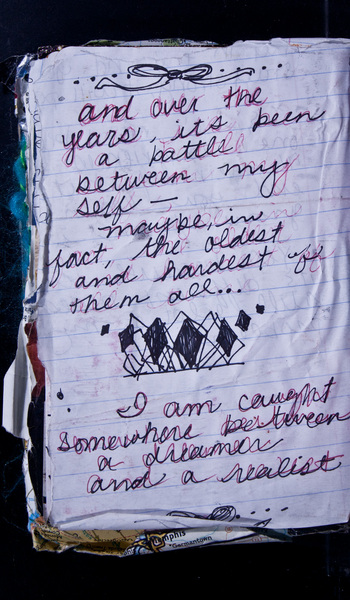 and over the
years, its been
a battle
between my
self —
maybe, in
fact, the oldest
and hardest of
them all...
I am caught
somewhere between
a dreamer
and a realist
Memphis
Germantown